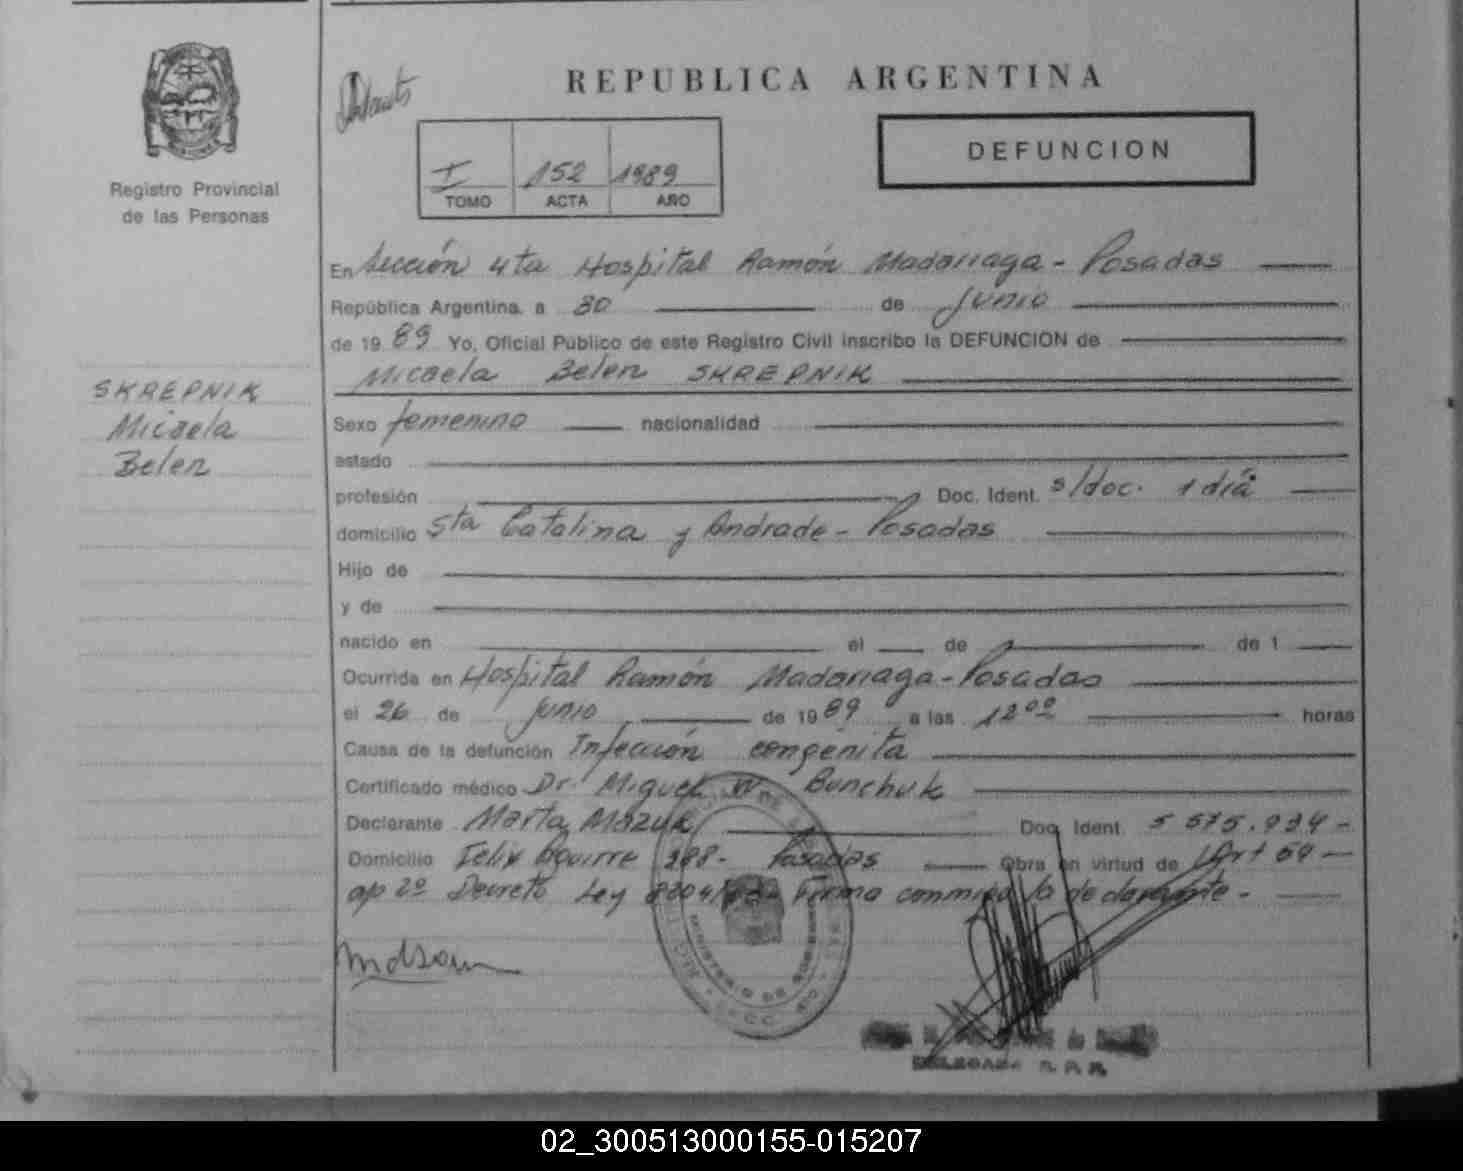 REPUBLICA ARGENTINA
Registro Provincial
de las Personas
DEFUNCION
I 152 1989
TOMO ACTA AÑO
En Sección 4ta Hospital Ramón Madariaga - Posadas
República Argentina, a 30 de junio
de 1989 Yo, Oficial Público de este Registro Civil inscribo la DEFUNCION de
Micaela Belen SKREPNIK
SKREPNIK
Micaela
Belen
Sexo femenino nacionalidad
estado
profesión Doc. Ident. s/doc. 1 día
domicilio Sta Catalina y Andrade - Posadas
Hijo de
y de
nacido en el de de 1
Ocurrida en Hospital Ramón Madariaga - Posadas
el 26 de junio de 1989 a las 12 00 horas
Causa de la defunción Infección congénita
Certificado médico Dr. Miguel W. Bunchuk
Declarante Marta Mazur Doc. Ident. 5 575.934 -
Domicilio Felix Aguirre - Posadas Obra en virtud de Art 59 -
ap 2º Decreto Ley Firma conmigo la declarante -
DELEGADA R. P. P.
02_300513000155-015207